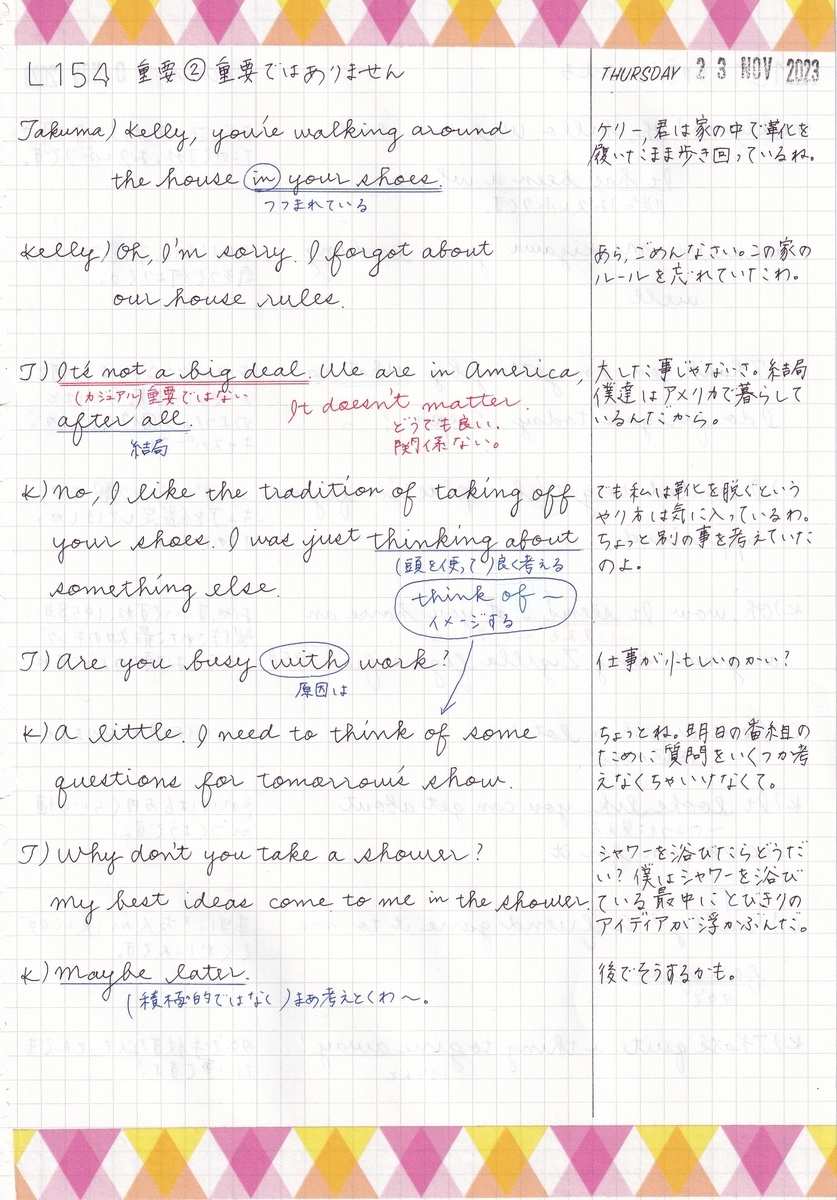 L154 重要② 重要ではありません
THURSDAY 23 NOV 2023
Takuma) Kelly, you're walking around
the house in your shoes.
つつまれている
ケリー, 君は家の中で革化を
履いたまま歩き回っているね。
Kelly) Oh, I'm sorry. I forgot about
our house rules.
あら, ごめんなさい。この家の
ルールを忘れていたわ。
T) It's not a big deal. We are in America,
(カジュアル)重要ではない
after all.
結局
It doesn't matter.
どうでも良い。
関係ない。
大した事じゃないさ。結局
僕達はアメリカで暮らして
いるんだから。
K) No, I like the tradition of taking off
your shoes. I was just thinking about
(頭を使って)良く考える
something else.
think of ~
イメージする
でも私は靴を脱ぐという
やり方は気に入っているわ。
ちょっと別の事を考えていた
のよ。
T) Are you busy with work?
原因は
仕事が忙しいのかい?
K) A little. I need to think of some
questions for tomorrow's show.
ちょっとね。明日の番組の
ために質問をいくつか考
えなくちゃいけなくて。
T) Why don't you take a shower?
My best ideas come to me in the shower.
シャワーを浴びたらどうだ
い? 僕はシャワーを浴び
ている最中にとびきりの
アイディアが浮かぶんだ。
K) Maybe later.
(積極的ではなく)まあ考えとくわ～。
後でそうするかも。